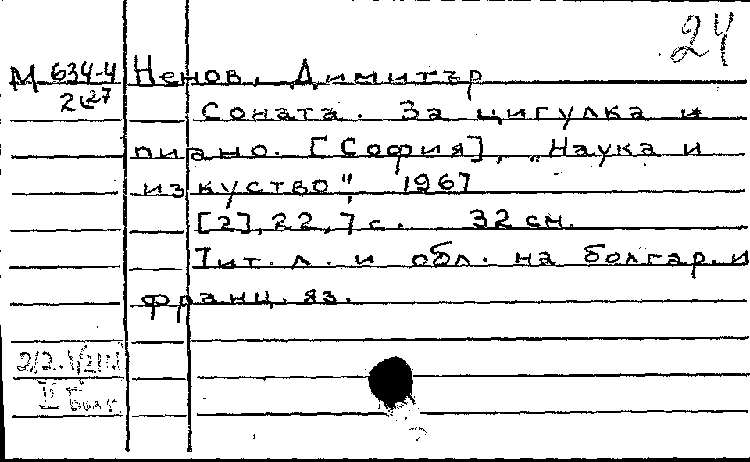 24
М 634-4 Ненов, Димитър
2627
Соната. За цигулка и
пиано. [София], „Наука и
изкуство", 1967
[2], 22, 7 с. 32 см.
Тит. л. и обл. на болгар. и
франц. яз.
2/2.VIII
II Болг